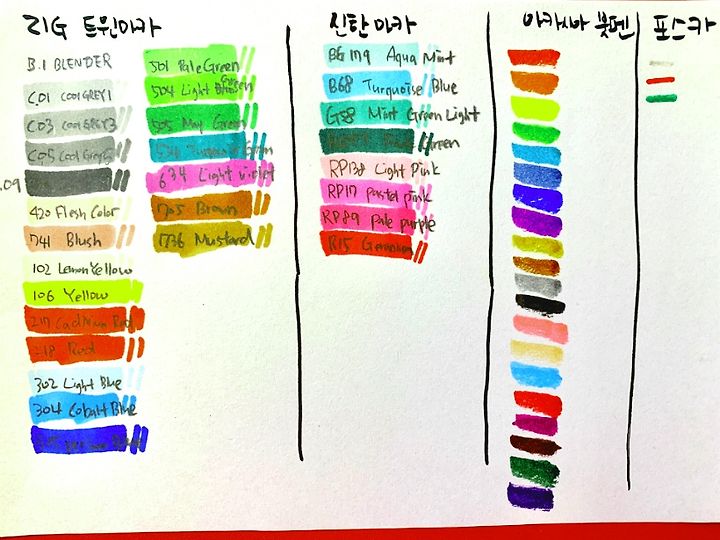 ZIG 트윈마카
B.1 BLENDER
C01 COOL GREY1
C03 COOL GREY3
C05 Cool Grey5
.09
420 Flesh Color
741 Blush
102 Lemon Yellow
106 Yellow
217 Cadmium Red
218 Red
302 Light Blue
304 Cobalt Blue
501 Pale Green
504 Light Green
505 May Green
Green
634 Light Violet
705 Brown
1736 Mustard
신한마카
BG179 Aqua Mint
B68 Turquoise Blue
G58 Mint Green Light
Green
RP138 Light Pink
RP17 Pastel pink
RP89 Pale purple
R15 Geranium
아카시아 붓펜
포스카